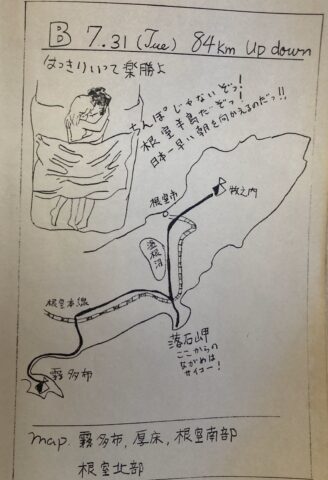 B 7.31 (Tue) 84km Up down
はっきりいって楽勝よ
ちんぽじゃないぞっ!
根室半島だぞっ!
日本一早い朝を向かえるのだっ!!
牧の内
根室市
温根沼
根室本線
落石岬
ここからの
ながめは
サイコー!
霧多布
map. 霧多布, 厚床, 根室南部
根室北部